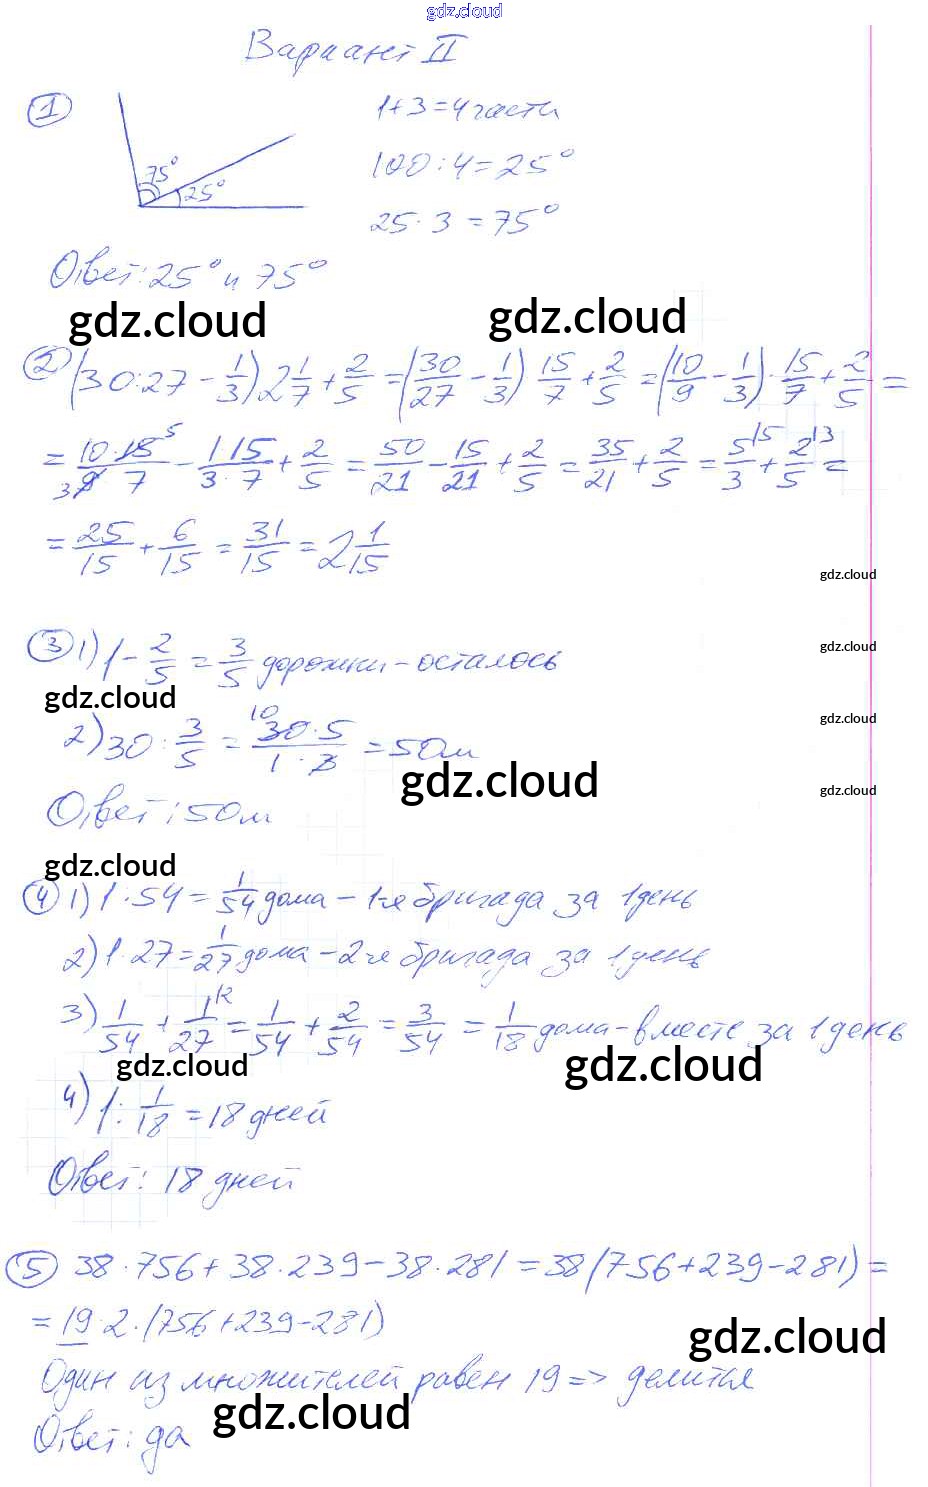 gdz.cloud
Вариант II
1 1+3=4 части
75°
100:4=25°
25°
25·3=75°
Ответ: 25° и 75°
gdz.cloud gdz.cloud
2 (30:27 - 1/3) 2 1/7 + 2/5 = (30/27 - 1/3) 15/7 + 2/5 = (10/9 - 1/3)·15/7 + 2/5 =
= 10·15 5/3 9 7 - 1·15/3·7 + 2/5 = 50/21 - 15/21 + 2/5 = 35/21 + 2/5 = 5/3 |5 + 2/5 |3 =
= 25/15 + 6/15 = 31/15 = 2 1/15
gdz.cloud
3 1) 1 - 2/5 = 3/5 дорожки - осталось
gdz.cloud
gdz.cloud
2) 30 : 3/5 = 10 30·5/1·3 = 50м
gdz.cloud
gdz.cloud
gdz.cloud
Ответ: 50м
gdz.cloud
4 1) 1:54 = 1/54 дома - 1-я бригада за 1 день
2) 1:27 = 1/27 дома - 2-я бригада за 1 день
3) 1/54 + 1/27 |2 = 1/54 + 2/54 = 3/54 = 1/18 дома - вместе за 1 день
gdz.cloud gdz.cloud
4) 1 : 1/18 = 18 дней
Ответ: 18 дней
5 38·756+38·239-38·281=38(756+239-281)=
=19·2·(756+239-281)
gdz.cloud
Один из множителей равен 19 => делится
gdz.cloud
Ответ: да